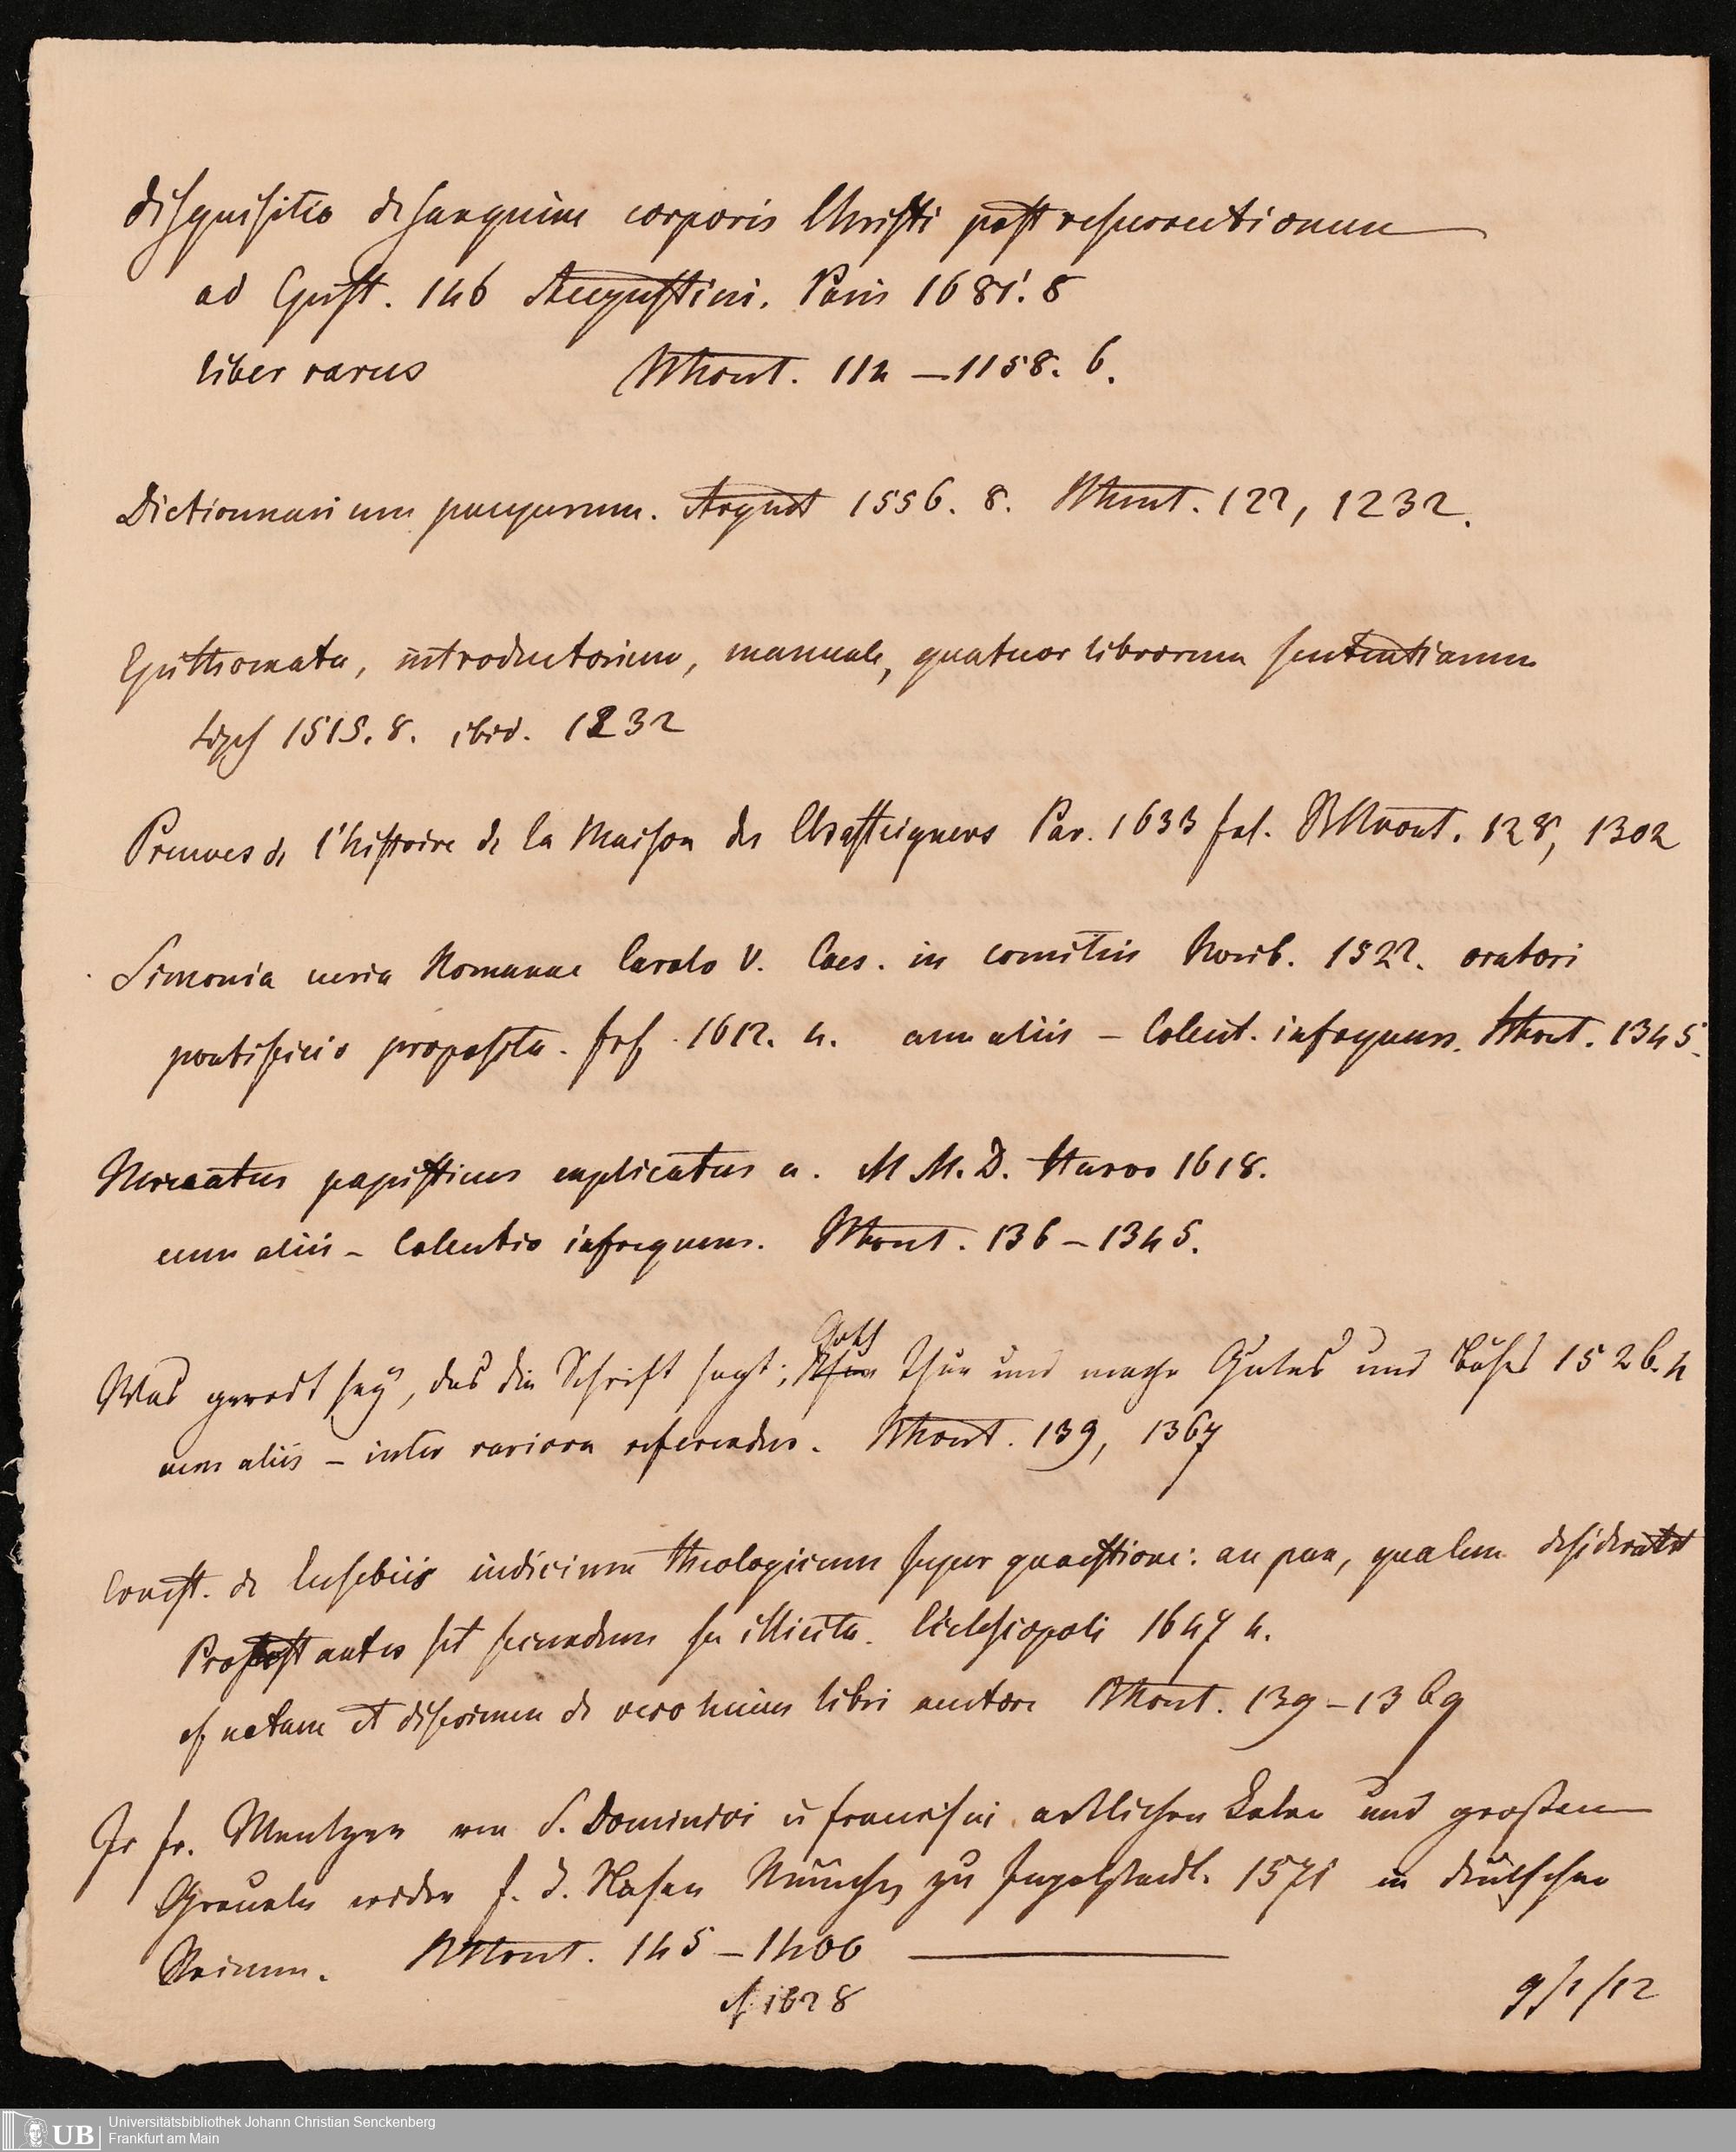 disquisitio de sanguine corporis Christi post resurrectionem
ad Epist. 146 Augustini. Paris 1681. 8
liber rarus Mont. 114 — 1158. 6.
Dictionnarium pauperum. 1556. 8. Mont. 122, 1232.
Epithomata, introductorium, manuale, quatuor librorum sententiarum
1515. 8. ibid. 1232
Preuves de l'histoire de la Maison des Chasteigners Par. 1633 fol. Mont. 128, 1302
Simonia curia Romanae Carolo V. Caes. in comitiis Norib. 1522. oratori
pontificio proposita. 1612. 4. cum aliis – Collect. infrequens. Mont. 1345.
Mercatus papisticus explicatus a. M M. D. 1618.
cum aliis – Collectio infrequens. Mont. 136 – 1345.
Gott
Was geredt sey, das die Schrift sagt; thue und mache Gutes und Böses 1526. 4
cum aliis – inter rariora referendus. Mont. 139, 1367
Ernest. de Eusebiis iudicium theologicum super quaestione: an pax, qualem desiderant
Protestantes sit secundum se illicita. Ecclesiopoli 1647 4.
cf notam et discrimen de vero huius libri autore Mont. 139 – 1369
J. Fr. Mentzer von S. Dominici u Francisci artlichen Leben und großen
Greueln wider f. J. Nasen Münch zu Ingolstadt. 1571 in deutschen
Reimen. Mont. 145 – 1466
cf. 1628
9/1/12
Universitätsbibliothek Johann Christian Senckenberg
Frankfurt am Main
UB